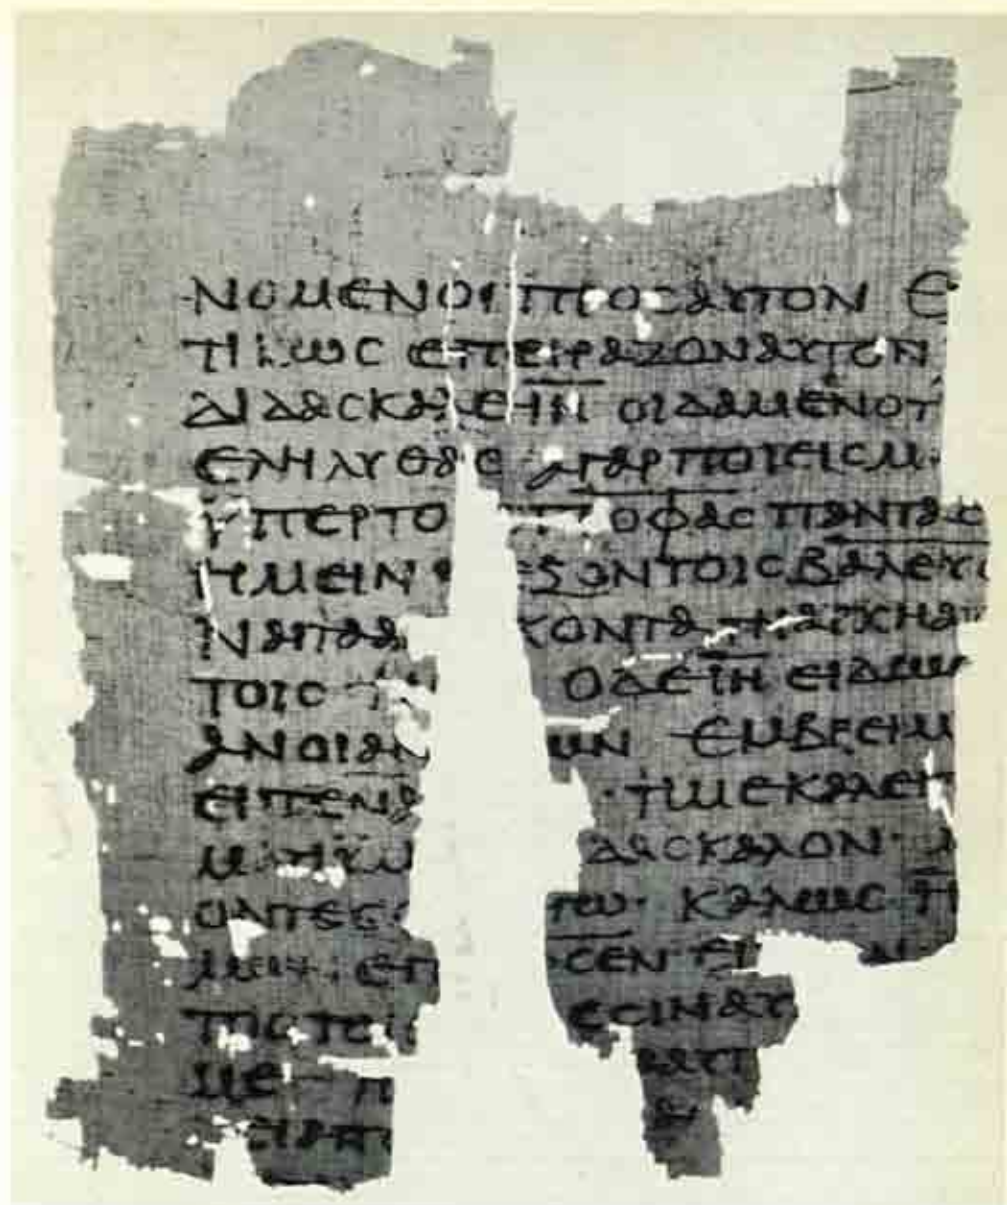 ΝΟΜΕΝΟΙ ΠΡΟΣ ΑΥΤΟΝ ΕΞ
ΤΙΚΩΣ ΕΠΕΙΡΑΖΟΝ ΑΥΤΟΝ
ΔΙΔΑΣΚΑΛΕ ΙΗ ΟΙΔΑΜΕΝ ΟΤΙ
ΕΛΗΛΥΘΑΣ Α ΓΑΡ ΠΟΙΕΙΣ ΜΑ
ΥΠΕΡ ΤΟ ΠΡΟΦΑΣ ΠΑΝΤΑΣ
ΗΜΕΙΝ ΕΞΟΝ ΤΟΙΣ ΒΑΛΕΥΣ
ΝΑΙ ΤΑ ΑΝ ΚΟΝΤΑ ΤΗ ΑΡΧΗ ΑΠ
ΤΟΙΣ Η Μ Ο ΔΕ ΙΗ ΕΙΔΩΣ
ΑΝΟΙΑΝ ΩΝ ΕΜΒΡΕΙΜ
ΕΙΠΕΝ Α ΤΙ ΜΕ ΚΑΛΕΙΤ
ΜΑΤΙ ΥΜ ΔΑΣΚΑΛΟΝ Μ
ΟΝΤΕΣ Ο ΓΩ ΚΑΛΩΣ Η
ΜΩΝ ΕΠ ΣΕΝ ΕΙΠΩΝ
ΤΟΣ ΤΟΙΣ ΕΣΙΝ ΑΥ
ΜΕ Η ΑΥΤ
ΧΕΙ ΑΠ Ε